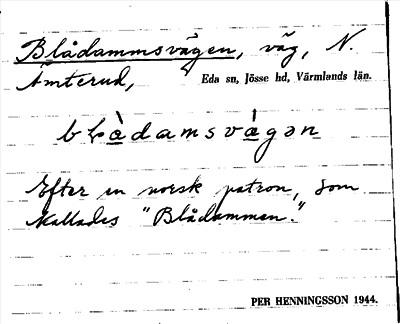 Blådammsvägen, väg, N.
Ämterud, Eda sn, Jösse hd, Värmlands län.
blàdamsvá̀gən
Efter en norsk patron, som
kallades "Blådammen."
PER HENNINGSSON 1944.